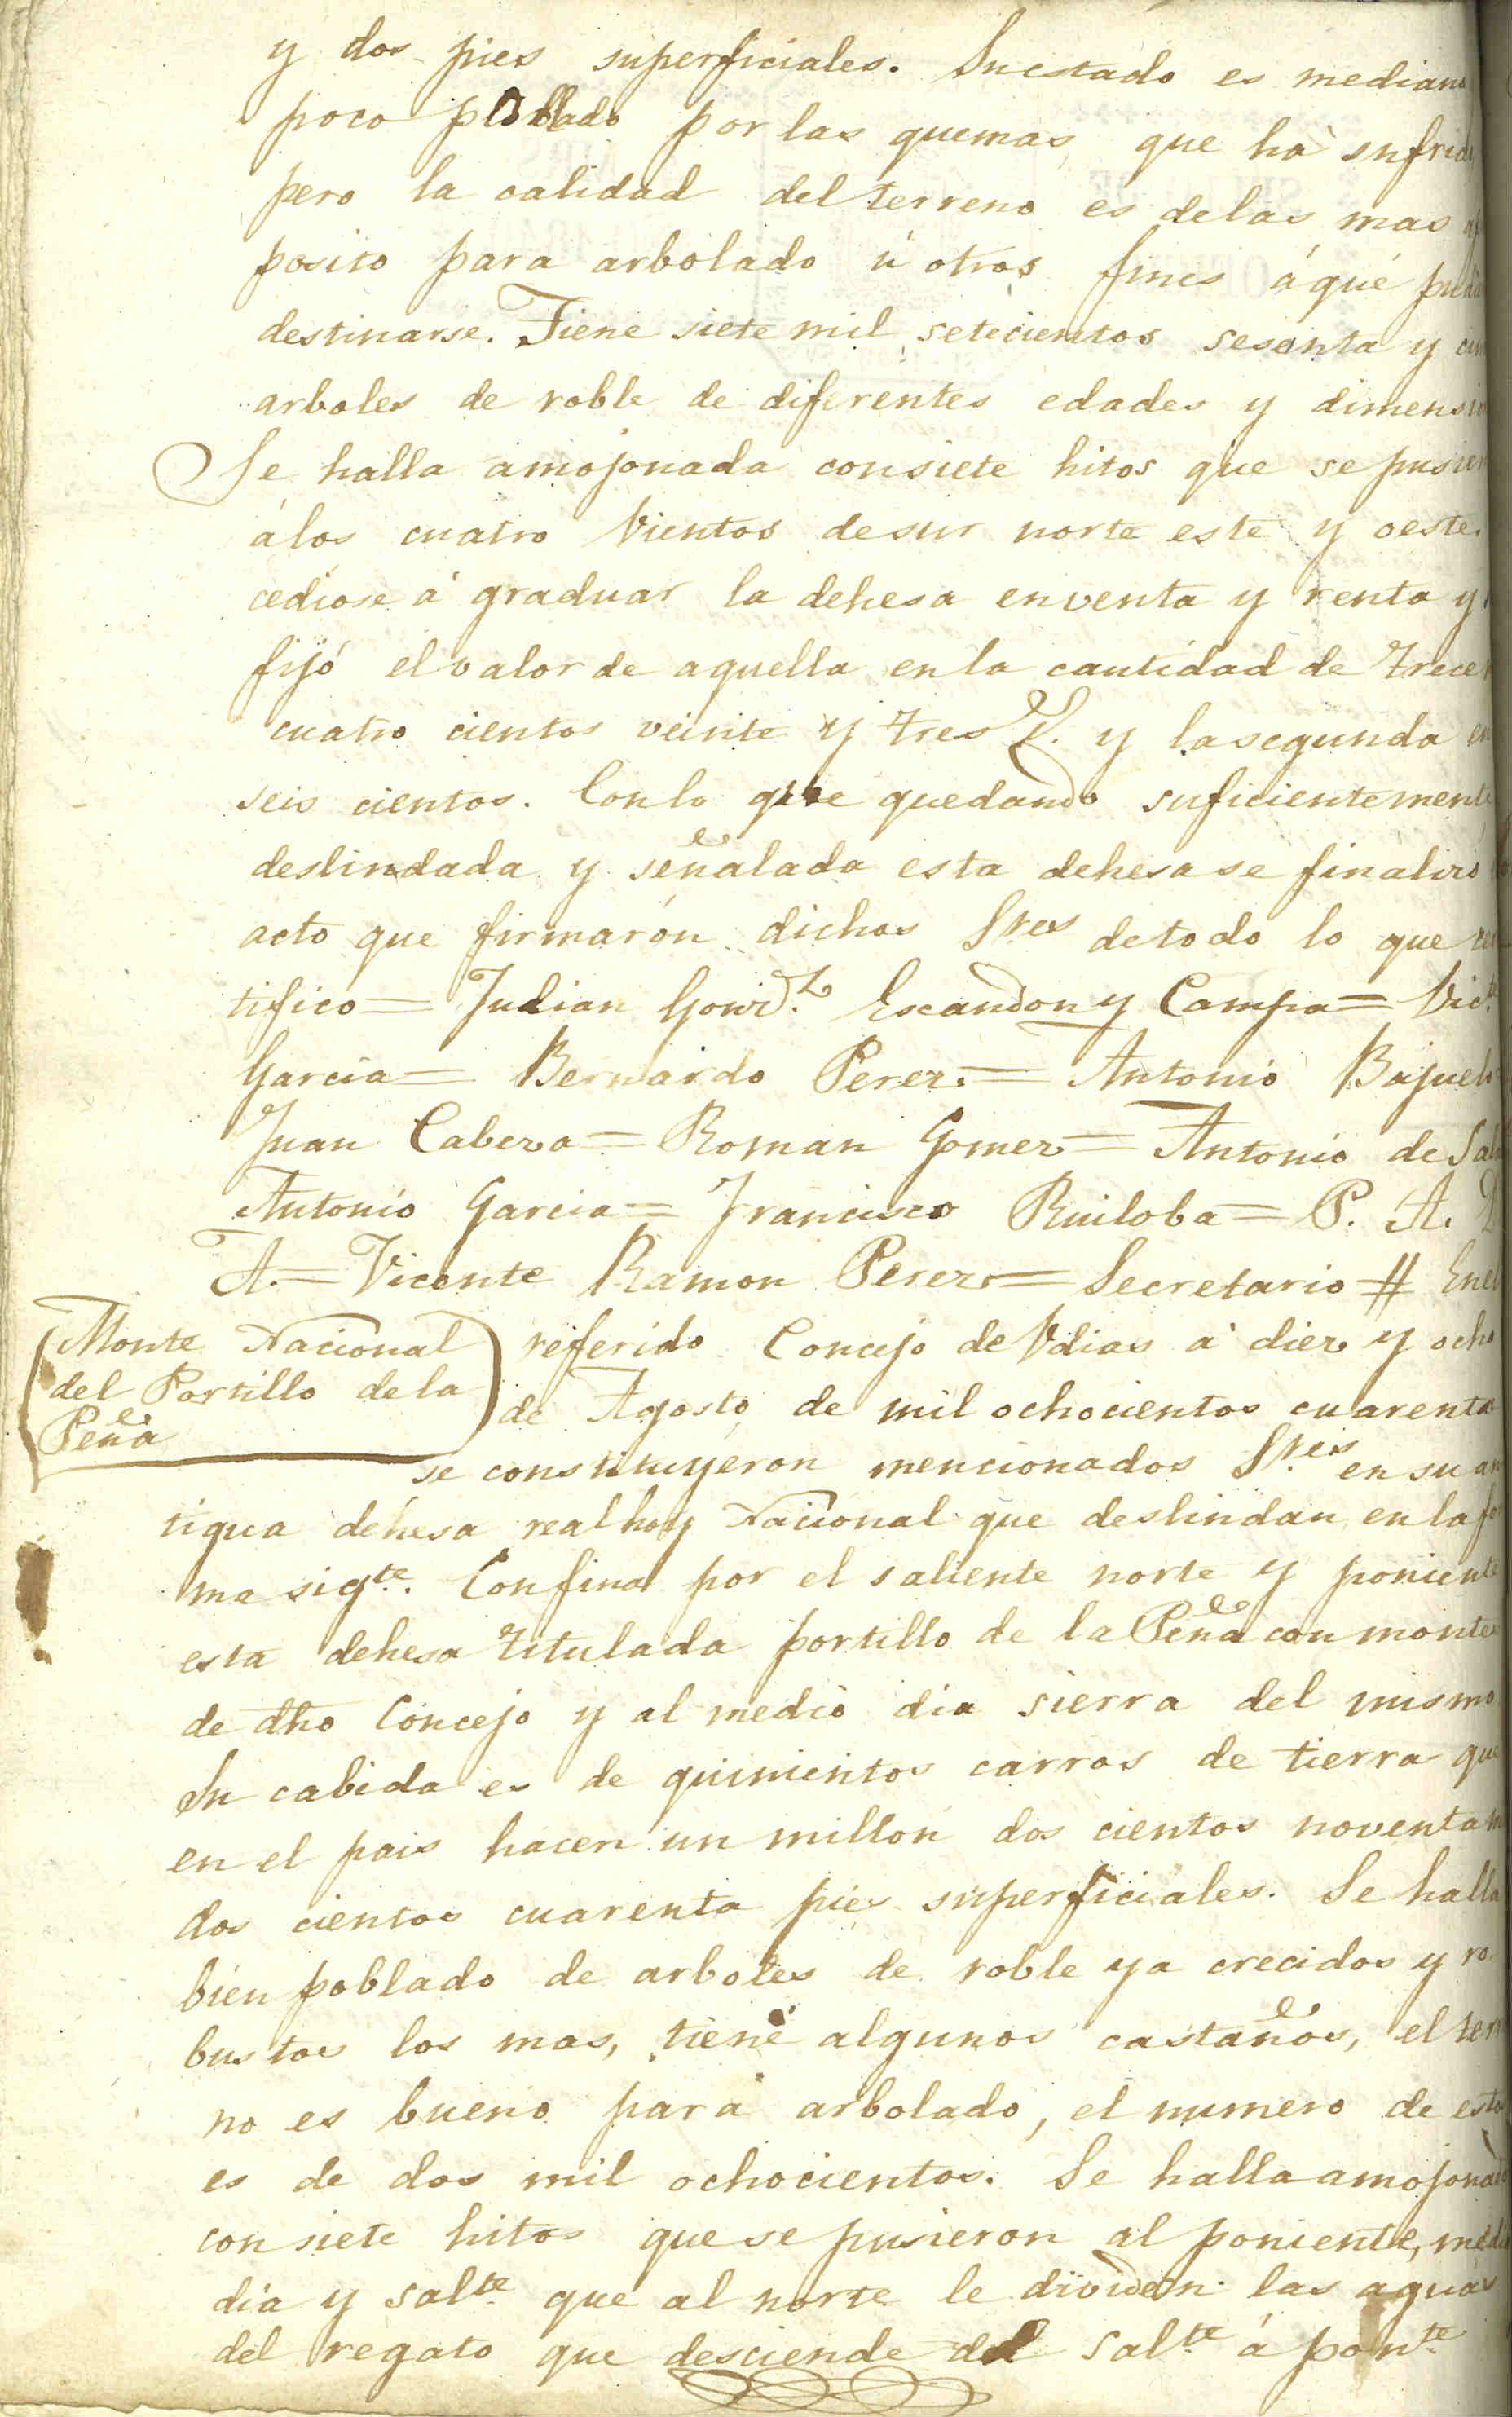 y dos pies superficiales. Su estado es mediano
poco poblado por las quemas, que há sufrido
pero la calidad del terreno es de las mas
posito para arbolado ú otros fines á qué
destinarse. Tiene siete mil setecientos sesenta y
arboles de roble de diferentes edades y dimensi
Se halla amojonada con siete hitos que se pusier
á los cuatro Vientos de sur norte este y oeste.
cediose á graduar la dehesa en venta y renta y
fijó el valor de aquella en la cantidad de trece
cuatro cientos veinte y tres Rˢ. y la segunda en
seis cientos. Con lo que quedando suficientemente
deslindada y señalada esta dehesa se finalizó
acto que firmarón dichos Sres de todo lo que cer
tifico = Julian Gonz.ᶻ Escandon y Campa = Vic.ᵗᵉ
Garcia = Bernardo Perez. = Antonio Bajuelo
Juan Cabeza = Roman Gomez = Antonio de
Antonio Garcia = Francisco Ruiloba = P. A. D
A. = Vicente Ramon Perez = Secretario # En el
Monte Nacional
del Portillo de la
Peña
referido Concejo de Vdias á diez y ocho
de Agosto de mil ochocientos cuarenta
se constituyéron mencionados S.res en su an
tigua dehesa real hoy Nacional que deslindan en la for
ma sig.te. Confina por el saliente norte y poniente
esta dehesa titulada portillo de la Peña con montes
de dho Concejo y al medio dia sierra del mismo
Su cabida es de quinientos carros de tierra que
en el pais hacen un millon dos cientos noventa
dos cientos cuarenta pies superficiales. Se halla
bien poblado de arboles de roble ya crecidos y ro
bustos los mas, tiene algunos castaños, el terr
no es bueno para arbolado, el numero de estos
es de dos mil ochocientos. Se halla amojonada
con siete hitos que se pusieron al poniente, medio
dia y sal.te que al norte le dividen las aguas
del regato que desciende del Sal.te á pon.te